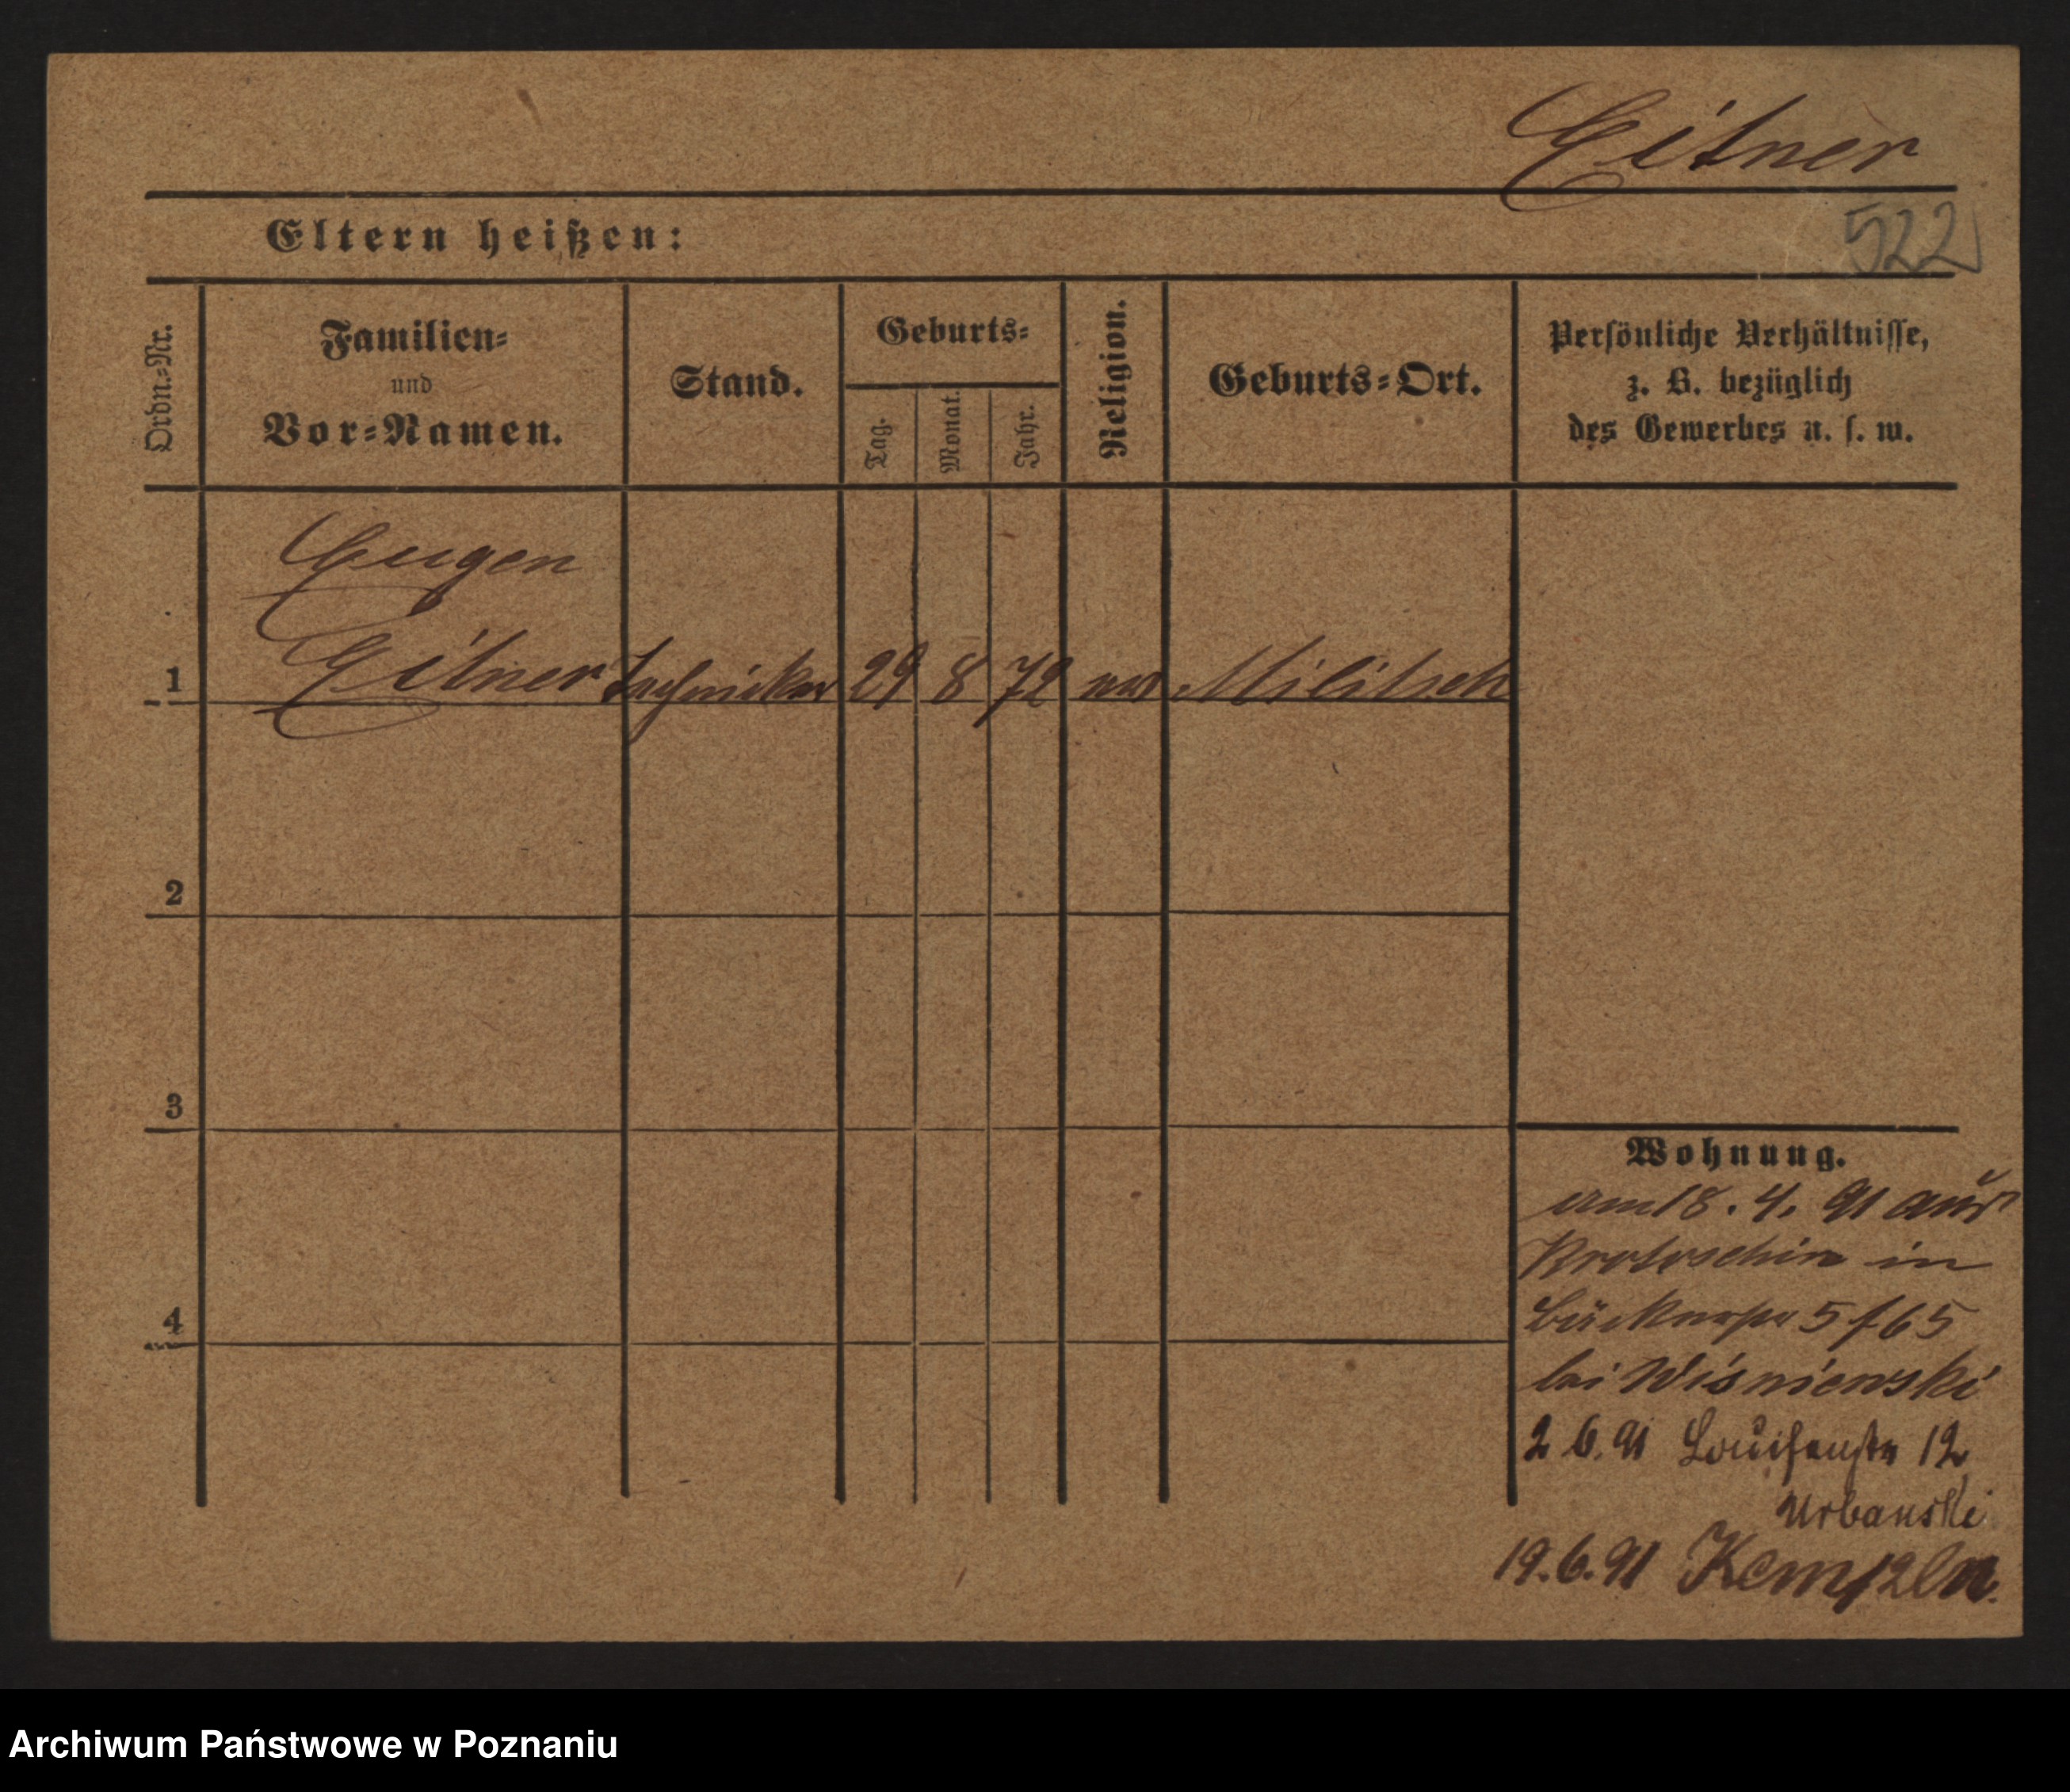 Eitner
522
Eltern heißen:
Ordn.-Nr.
Familien-
und
Vor-Namen.
Stand.
Geburts-
Tag.
Monat.
Jahr.
Religion.
Geburts-Ort.
Persönliche Verhältnisse,
z. B. bezüglich
des Gewerbes u. s. w.
Eugen
1 Eitner Techniker 29 8 72 Militsch
2
3
4
Wohnung.
am 18. 4. 91 aus
Krotoschin in
5 / 65
bei Wisniewski
2 6. 91 Louisenstr 12
Urbanski
19. 6. 91
Archiwum Państwowe w Poznaniu